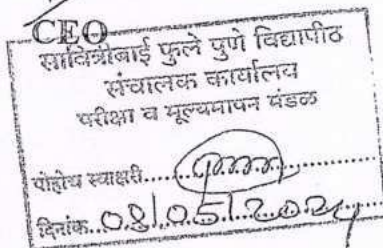 CEO
सावित्रीबाई फुले पुणे विद्यापीठ
संचालक कार्यालय
परीक्षा व मूल्यमापन मंडळ
पोहोच स्वाक्षरी
दिनांक 08/05/2024